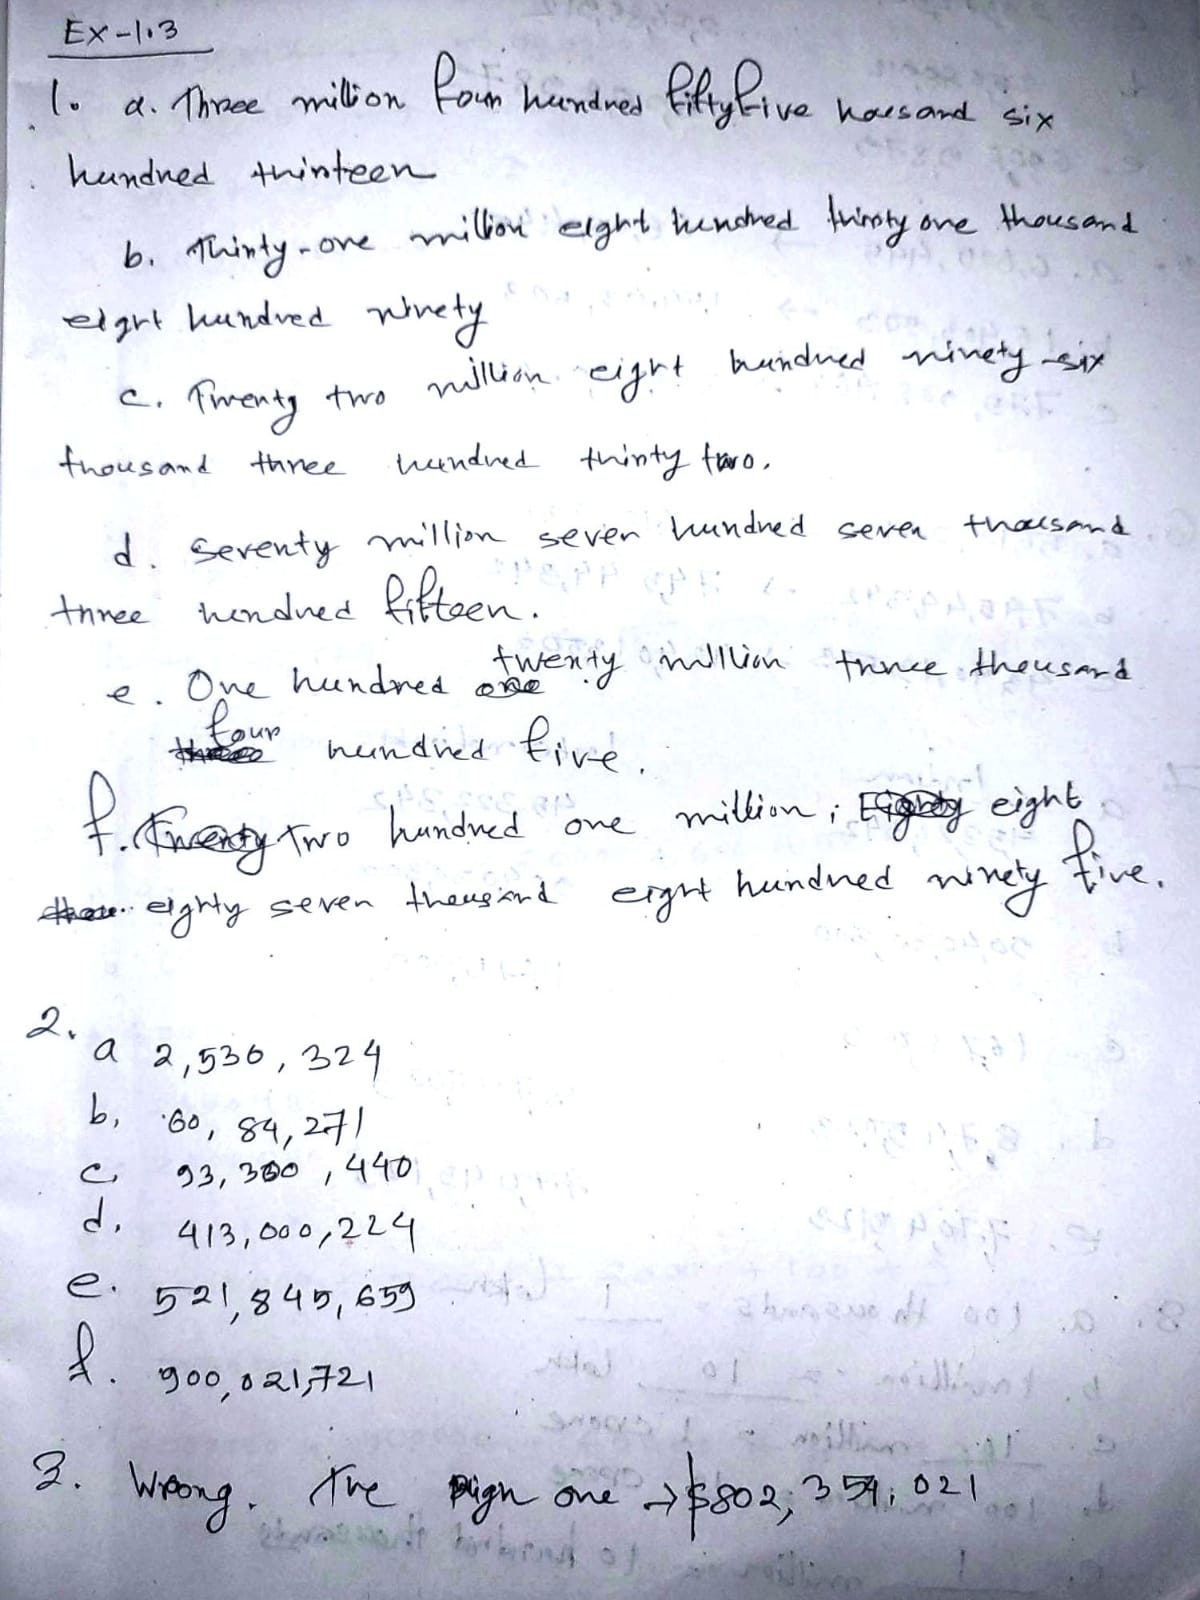 Ex-1.3
1. a. Three million four hundred fiftyfive housand six
hundred thirteen
b. Thirty-one million eight hundred thirty one thousand
eight hundred ninety
c. Twenty two million eight hundred ninety-six
thousand three hundred thirty two.
d. Seventy million seven hundred seven thousand
three hundred fifteen.
e. One hundred one twenty million three thousand
three four hundred five.
f. Twenty Two hundred one million; Eighty eight
eighty seven thousand eight hundred ninety five.
2.
a 2,530,324
b. 60, 84,271
c. 93,300,440
d. 413,000,224
e. 521,845,659
f. 900,021,721
3. Wrong. The one → $802, 354, 021